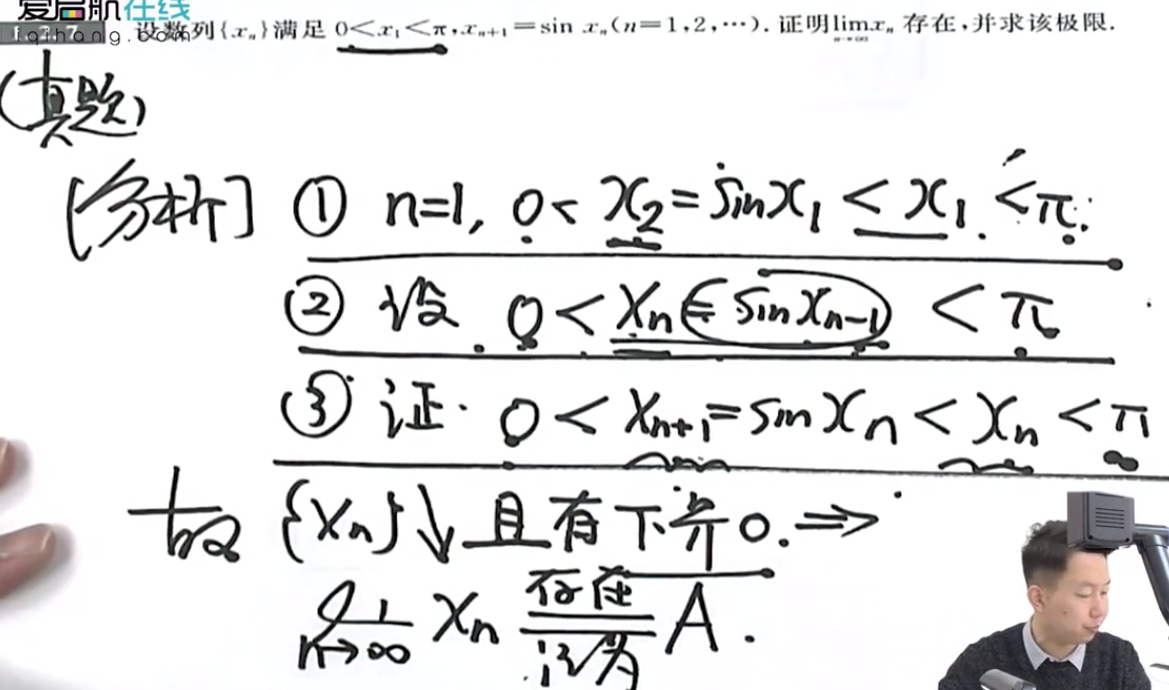 爱启航在线
1.2.7 qihang.com 设数列{xₙ}满足 0<x₁<π,xₙ₊₁=sin xₙ(n=1,2,⋯). 证明 lim xₙ 存在,并求该极限.
n→∞
(真题)
[分析] ① n=1, 0< x₂=sinx₁ ≤ x₁ <π.
② 设 0<xₙ=sinxₙ₋₁ < π
③ 证. 0<xₙ₊₁=sinxₙ<xₙ<π
故 {xₙ}↓且有下界0.⇒
lim xₙ 存在 A.
n→∞ 记为